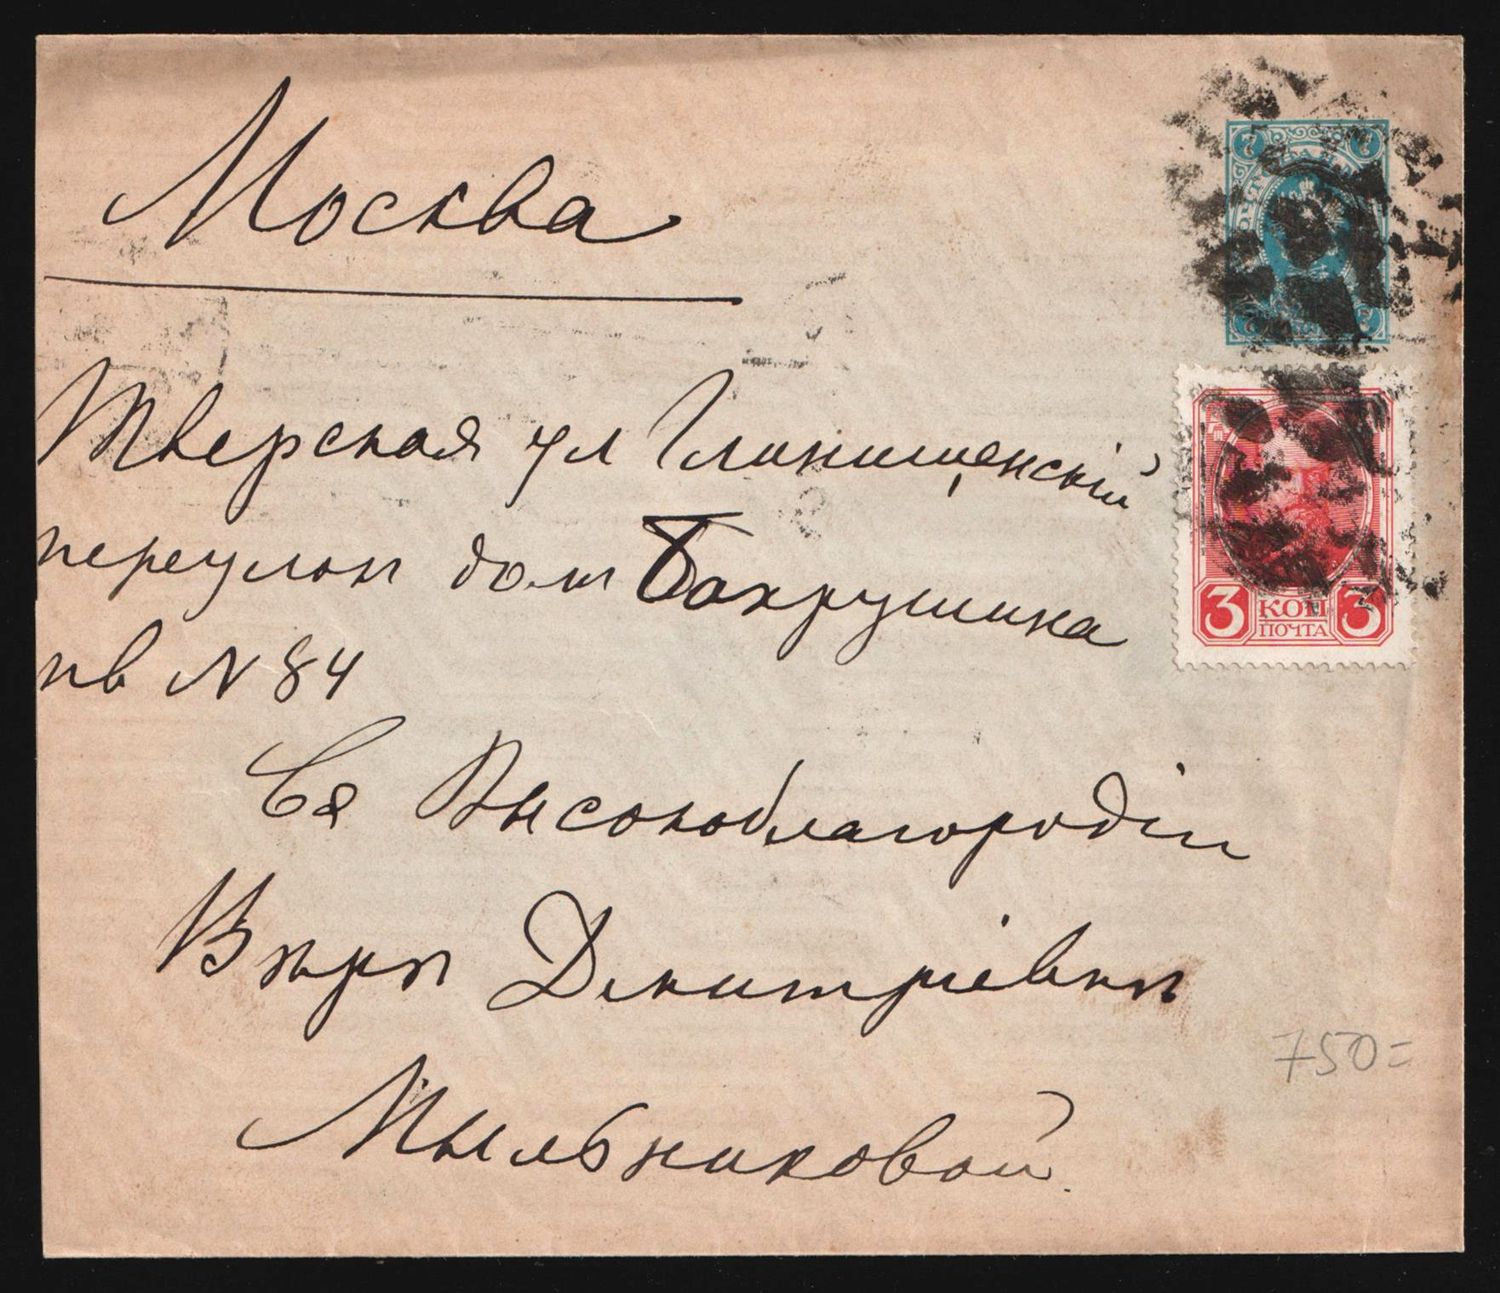 Москва
Тверская ул Глинищенскій
переулок дом Бахрушина
кв N 84
Ея Высокоблагородію
Вѣрѣ Дмитріевнѣ
Мыльниковой
7 7
7 7
3 КОП 3
ПОЧТА
750=